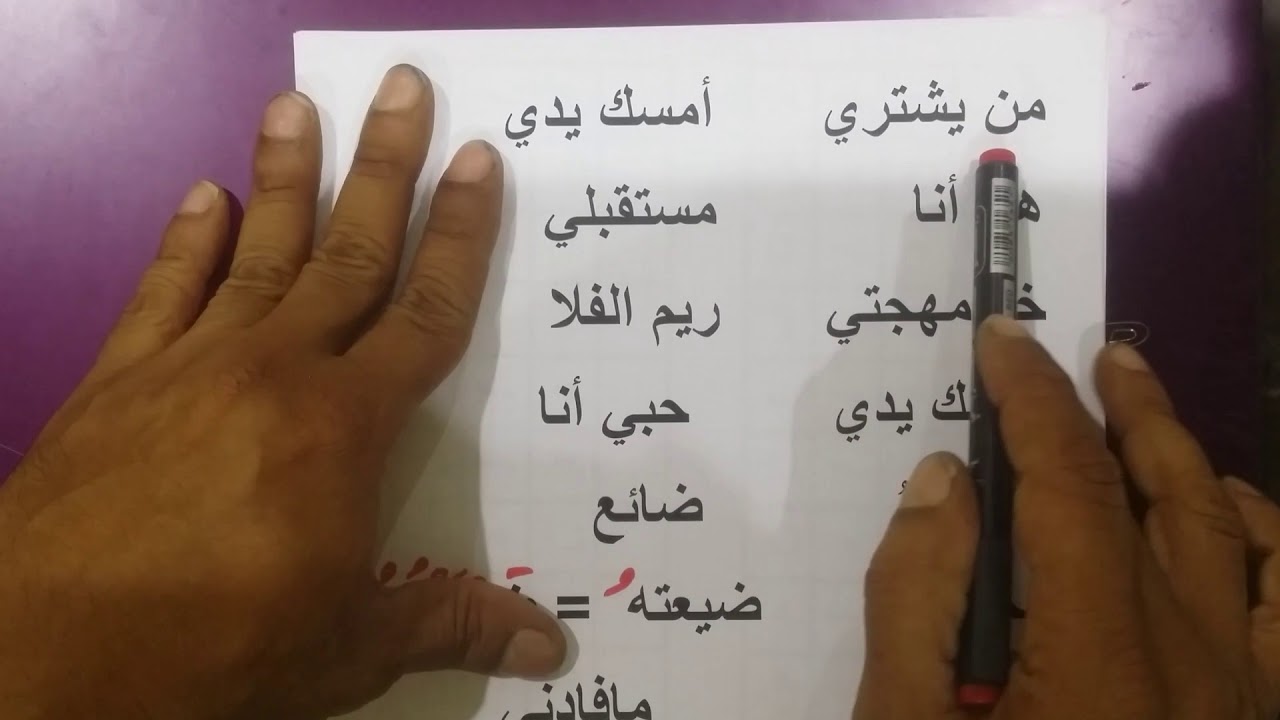 من يشتري أمسك يدي
أنا مستقبلي
مهجتي ريم الفلا
يدي حبي أنا
ضائع
ضيعتهُ =
مافادني